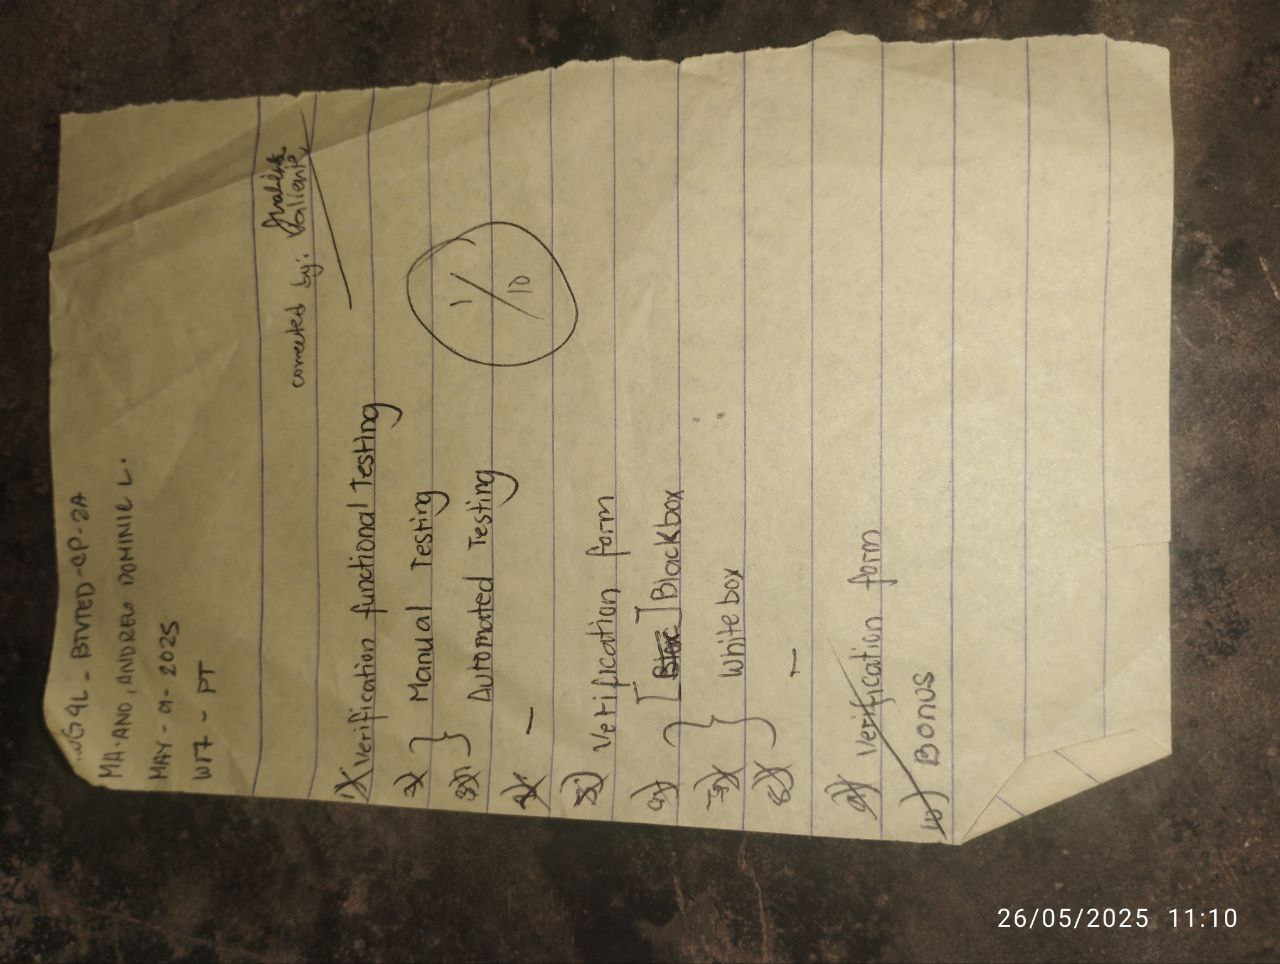 WG9L - BTVTED-CP-2A
MA.ANO, ANDREW DOMINIC L.
MAY-9-2025
W17 - PT
corrected by: Valiente
1) Verification functional Testing
2) Manual Testing
3) Automated Testing
4) —
5) Verification form
6) [Bloc] Blackbox
7) White box
8) —
9) Verification form
10) Bonus
1/10
26/05/2025 11:10